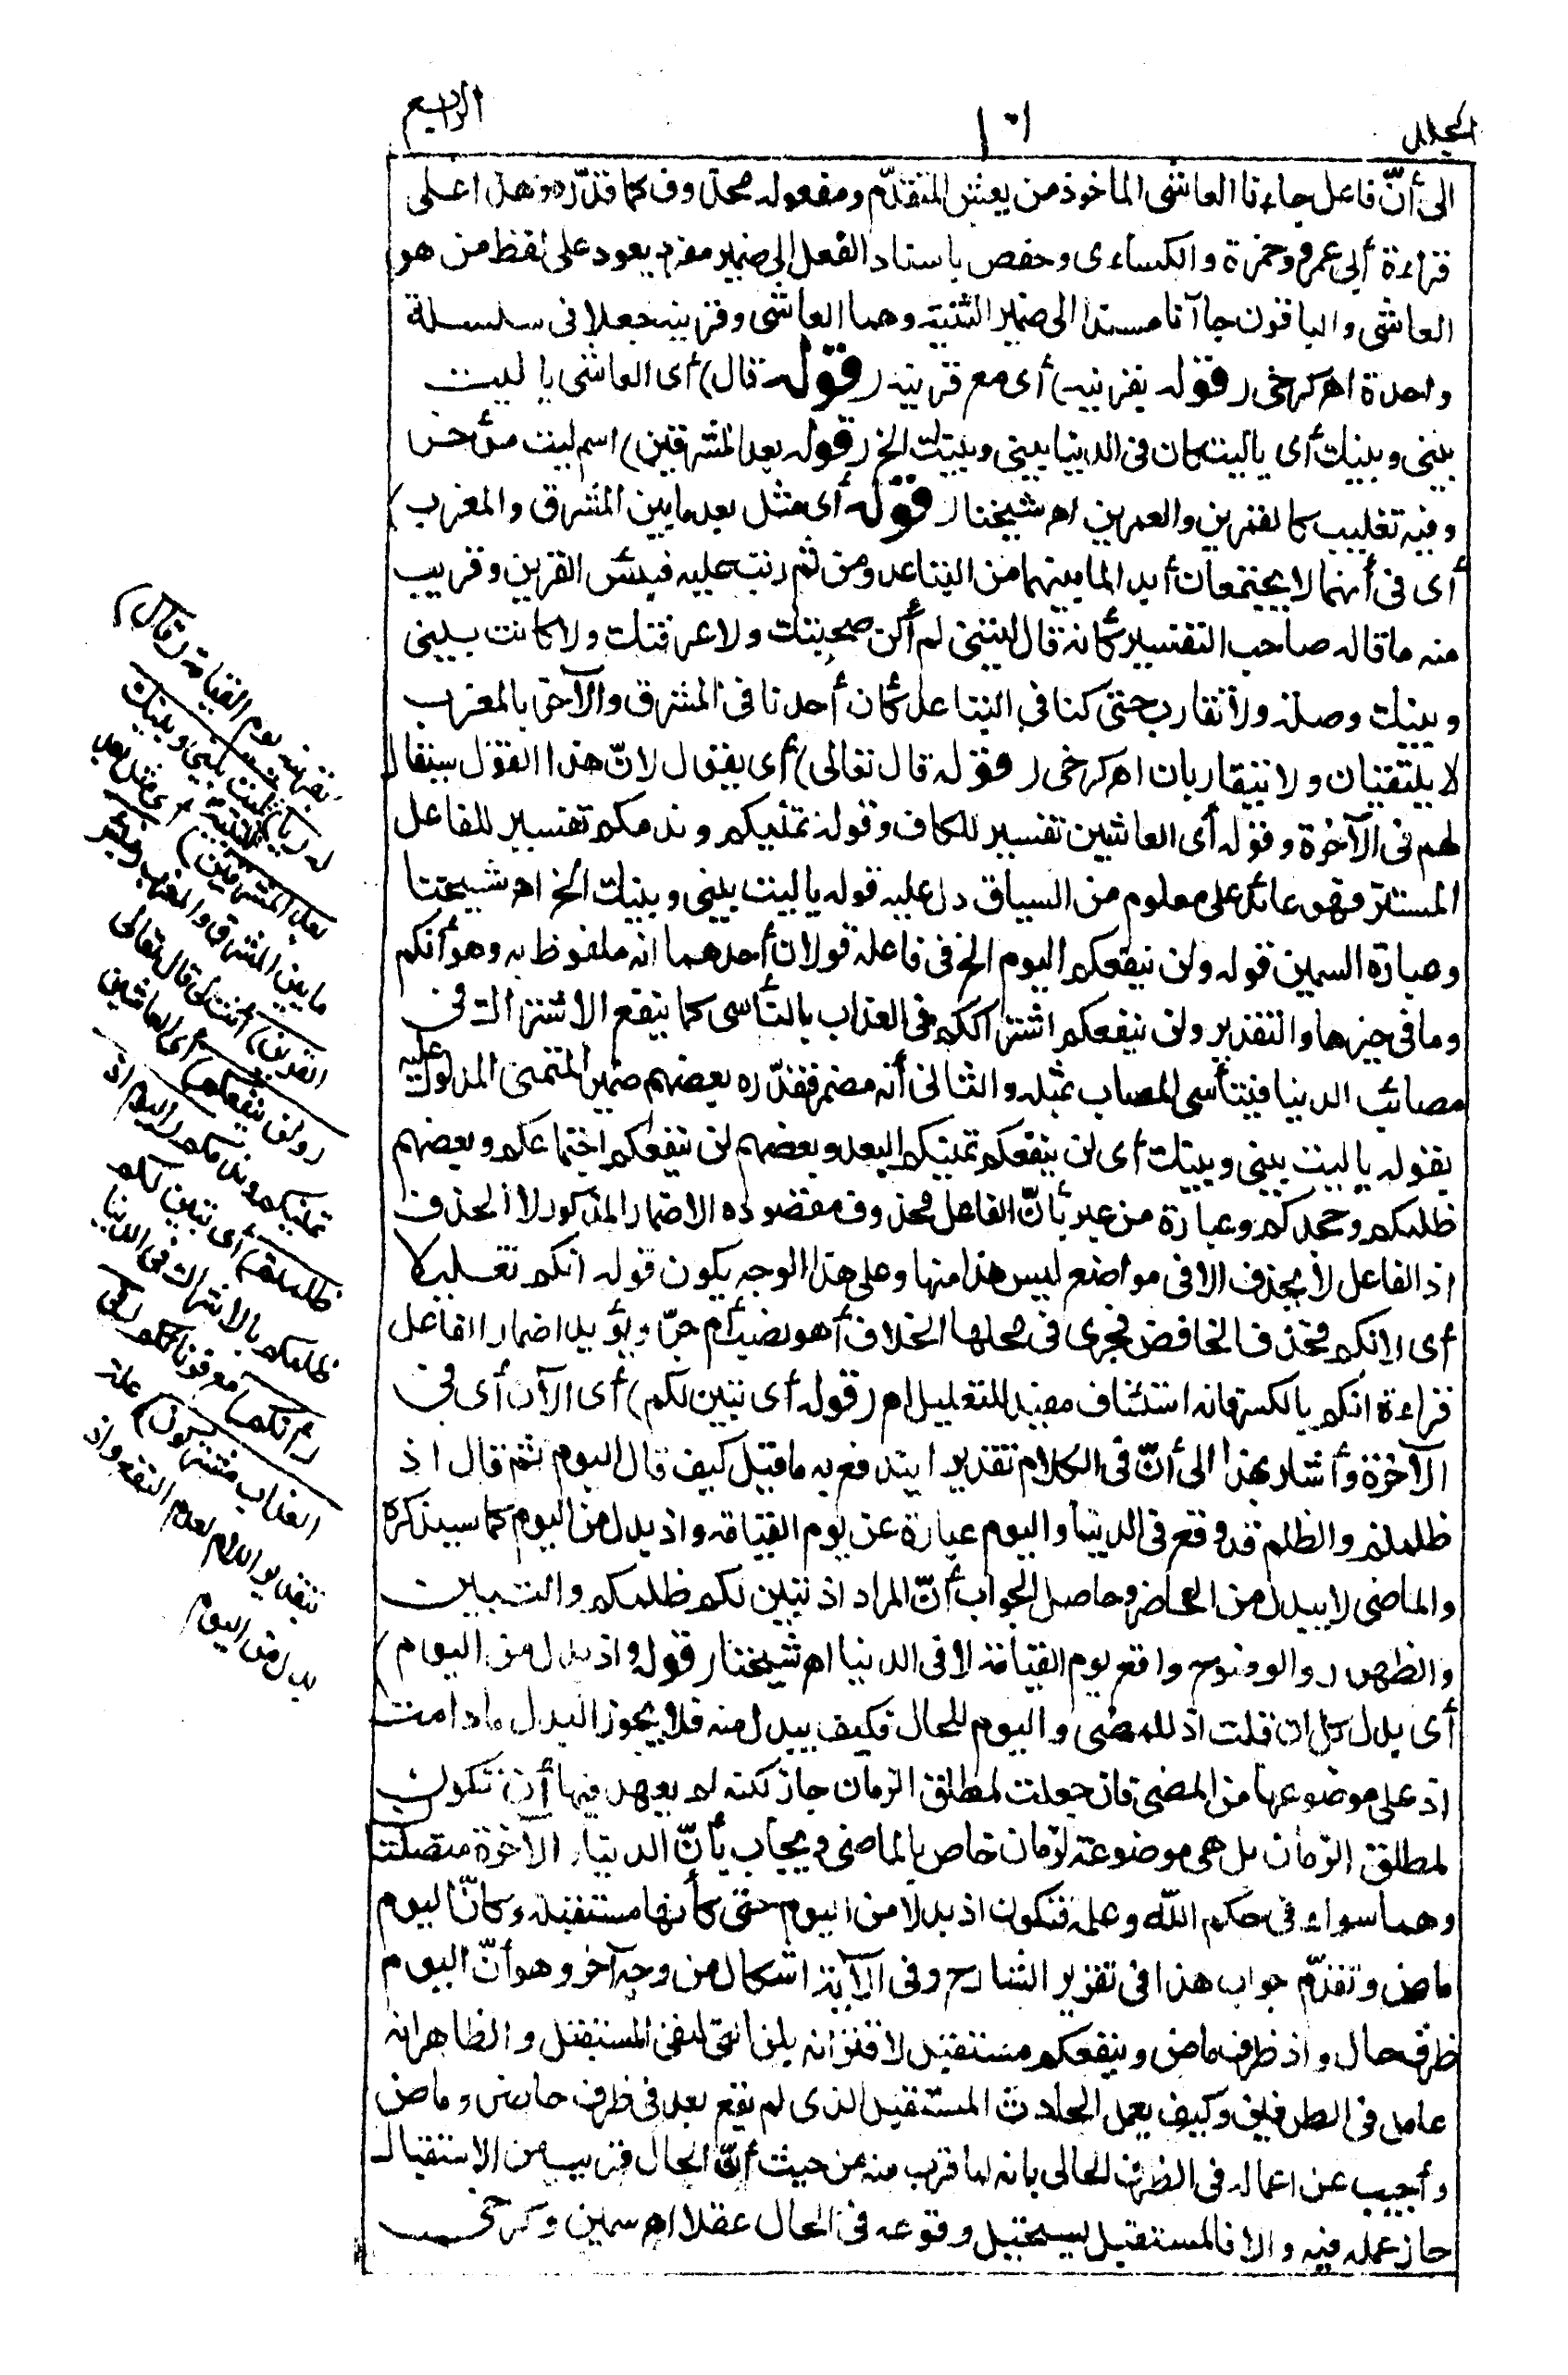 المجلد
الرابع
الى أنّ فاعل جاءنا العاشى الماخوذ من يعش المتقدّم ومفعوله محذوف كما قدّره وهذا على
قراءة أبى عمرو وحمزة والكساءى وحفص باسناد الفعل الى ضمير مفرد يعود على لفظ من هو
العاشى والباقون جاآنا مسندا الى ضمير التثنية وهما العاشى وقرينه جعلا فى سلسلة
واحدة اه كرخى (قوله بقرنيه) أى مع قرينه (قوله قال) أى العاشى يا ليت
بينى وبينك أى ياليت كان فى الدنيا بينى وبينك الخ (قوله بعد المشرقين) اسم ليت مؤخر
وفيه تغليب كالقمرين والعمرين اه شيخنا (قوله أى مثل بعد ما بين المشرق والمغرب)
أى فى أنهما لا يجتمعان أبدا لما بينهما من التباعد ومن ثم رتب عليه فبئس القرين وقريب
منه ما قاله صاحب التفسير كأنه قال ليتنى لم أكن صحبتك ولا عرفتك ولا كانت بينى
وبينك وصلة ولا تقارب حتى كنا فى التباعد كأن أحدنا فى المشرق والآخر بالمغرب
لا يلتقيان ولا يتقاربان اه كرخى (قوله قال تعالى) أى يقول لانّ هذا القول سيقال
لهم فى الآخرة وقوله أى العاشين تفسير للكاف وقوله تمنيكم وندمكم تفسير للفاعل
المستتر فهو عائد على معلوم من السياق دل عليه قوله يا ليت بينى وبينك الخ اه شيخنا
وعبارة السمين قوله ولن ينفعكم اليوم الخ فى فاعله قولان أحدهما انه ملفوظ به وهو أنكم
وما فى حيزها والتقدير ولن ينفعكم اشتراككم فى العذاب بالتأسى كما ينفع الاشتراك فى
مصائب الدنيا فيتأسى المصاب بمثله والثانى أنه مضمر فقدّره بعضهم ضمير المتمنى المدلول عليه
بقوله يا ليت بينى وبينك أى لن ينفعكم تمنيكم البعد وبعضهم لن ينفعكم اجتماعكم وبعضهم
ظلمكم وجحدكم وعبارة من عبر بأنّ الفاعل محذوف مقصوده الاضمار المذكور لا الحذف
اذ الفاعل لا يحذف الا فى مواضع ليس هذا منها وعلى هذا الوجه يكون قوله انكم تعليلا
أى لانكم فحذف الخافض فجرى فى محلها الخلاف أهو نصب أم جرّ ويؤيد اضمار الفاعل
قراءة انكم بالكسر فانه استئناف مفيد للتعليل اه (قوله أى تبين لكم) أى الآن أى فى
الآخرة وأشار بهذا الى أنّ فى الكلام تقديرا يندفع به ما قيل كيف قال اليوم ثم قال اذ
ظلمتم والظلم قد وقع فى الدنيا واليوم عبارة عن يوم القيامة واذ بدل من اليوم كما سيذكره
والماضى لا يبدل من الحاضر وحاصل الجواب أنّ المراد اذ تبين لكم ظلمكم والتبين
والظهور والوضوح واقع يوم القيامة لا فى الدنيا اه شيخنا (قوله واذ بدل من اليوم)
أى بدل كل ان قلت اذ للمضى واليوم للحال فكيف يبدل منه فلا يجوز البدل ما دامت
اذ على موضوعها من المضى فان جعلت لمطلق الزمان جاز لكنه لم يعهد فيها أن تكون
لمطلق الزمان بل هى موضوعة لزمان خاص بالماضى ويجاب بأنّ الدنيا الآخرة متصلتان
وهما سواء فى حكم الله وعلمه فتكون اذ بدلا من اليوم حتى كأنها مستقبلة وكانّ اليوم
ماض وتقدّم جواب هذا فى تقرير الشارح وفى الآية اشكال من وجه آخر وهو أنّ اليوم
ظرف حال واذ ظرف ماض وينفعكم مستقبل لاقترانه بلن التى لنفى المستقبل والظاهر انه
عامل فى الظرفين وكيف يعمل الحادث المستقبل الذى لم يقع بعد فى ظرف حاضر وماض
وأجيب عن اعماله فى الظرف الحالى بانه لما قرب منه من حيث أنّ الحال قريب من الاستقبال
جاز عمله فيه والا فالمستقبل يستحيل وقوعه فى الحال عقلا اه سمين وكرخى
بقرينه يوم القيامة (قال)
له (يا) للتنبيه (ليت بينى وبينك
بعد المشرقين) أى مثل بعد
ما بين المشرق والمغرب (فبئس
القرين) أنت لى قال تعالى
(ولن ينفعكم) أى العاشين
تمنيكم وندمكم (اليوم اذ
ظلمتم) أى تبين لكم
ظلمكم بالاشراك فى الدنيا
(أنكم) مع قرنائكم (فى
العذاب مشتركون) علة
بتقدير اللام لعدم النفع واذ
بدل من اليوم